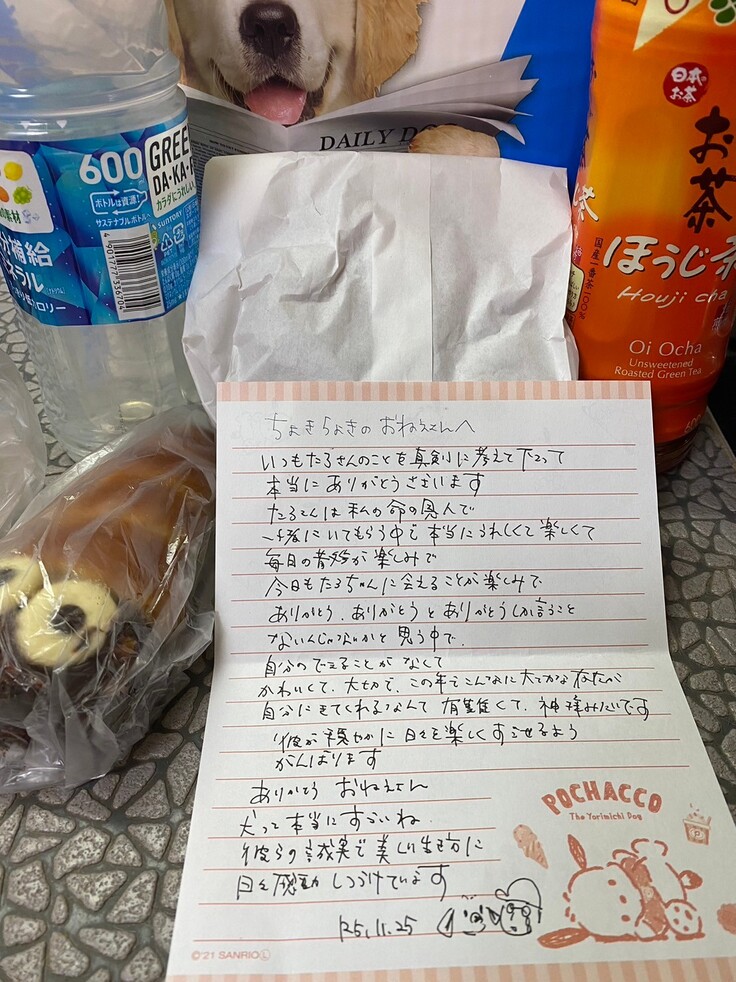 DAILY DO
600
GREE
DA・KA・
カラダにうれしい
ボトルは資源!
サステナブルボトルへ
SUNTORY
素材
補給
ラル
ロリー
4901777336704
日本の
お茶
お茶
ほうじ茶
Houji cha
国産一番茶100%
Oi Ocha
Unsweetened
Roasted Green Tea
ちょきちょきの おねえさんへ
いつもたろさんのことを真剣に考えて下さって
本当に ありがとうございます
たろさんは 私の命の恩人で
一緒にいてもらう中で 本当にうれしくて楽しくて
毎日の散歩が楽しみで
今日もたろちゃんに会えることが楽しみで
ありがとう、ありがとうとありがとうしか言うこと
ないんじゃないかと思う中で、
自分のできることが なくて
かわいくて、大切で、この年でこんなに大切な存在が
自分にできてくれるなんて 有難くて、神様みたいです
彼が穏やかに日々を楽しくすごせるよう
がんばります
ありがとう おねえさん
犬って本当にすごいね
彼らの誠実で美しい生き方に
日々感動しつづけています
'25.11.25
POCHACCO
The Yorimichi Dog
©'21 SANRIO Ⓛ